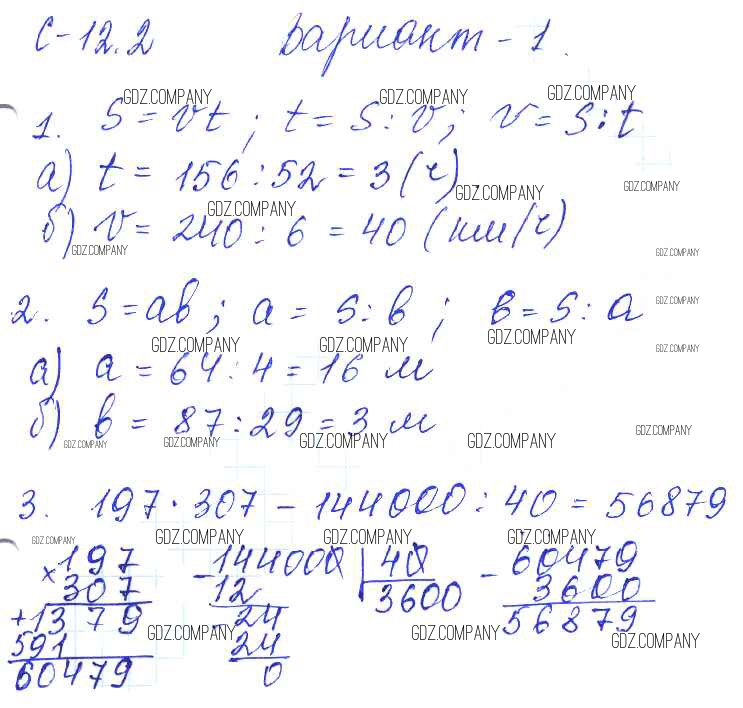 С-12.2 Вариант - 1.
GDZ.COMPANY GDZ.COMPANY GDZ.COMPANY
1. S = vt ; t = S : v ; v = S : t
а) t = 156 : 52 = 3 (ч)
GDZ.COMPANY GDZ.COMPANY GDZ.COMPANY
б) v = 240 : 6 = 40 (км/ч)
GDZ.COMPANY GDZ.COMPANY
2. S = ab ; a = S : b ; b = S : a
GDZ.COMPANY
GDZ.COMPANY GDZ.COMPANY GDZ.COMPANY GDZ.COMPANY
а) a = 64 : 4 = 16 м
б) b = 87 : 29 = 3 м
GDZ.COMPANY GDZ.COMPANY GDZ.COMPANY GDZ.COMPANY GDZ.COMPANY
3. 197 · 307 - 144000 : 40 = 56879
GDZ.COMPANY GDZ.COMPANY GDZ.COMPANY GDZ.COMPANY
× 197 - 144000 | 40 - 60479
307 12 3600 3600
+ 1379 - 24 56879
GDZ.COMPANY GDZ.COMPANY GDZ.COMPANY
591 24
60479 0